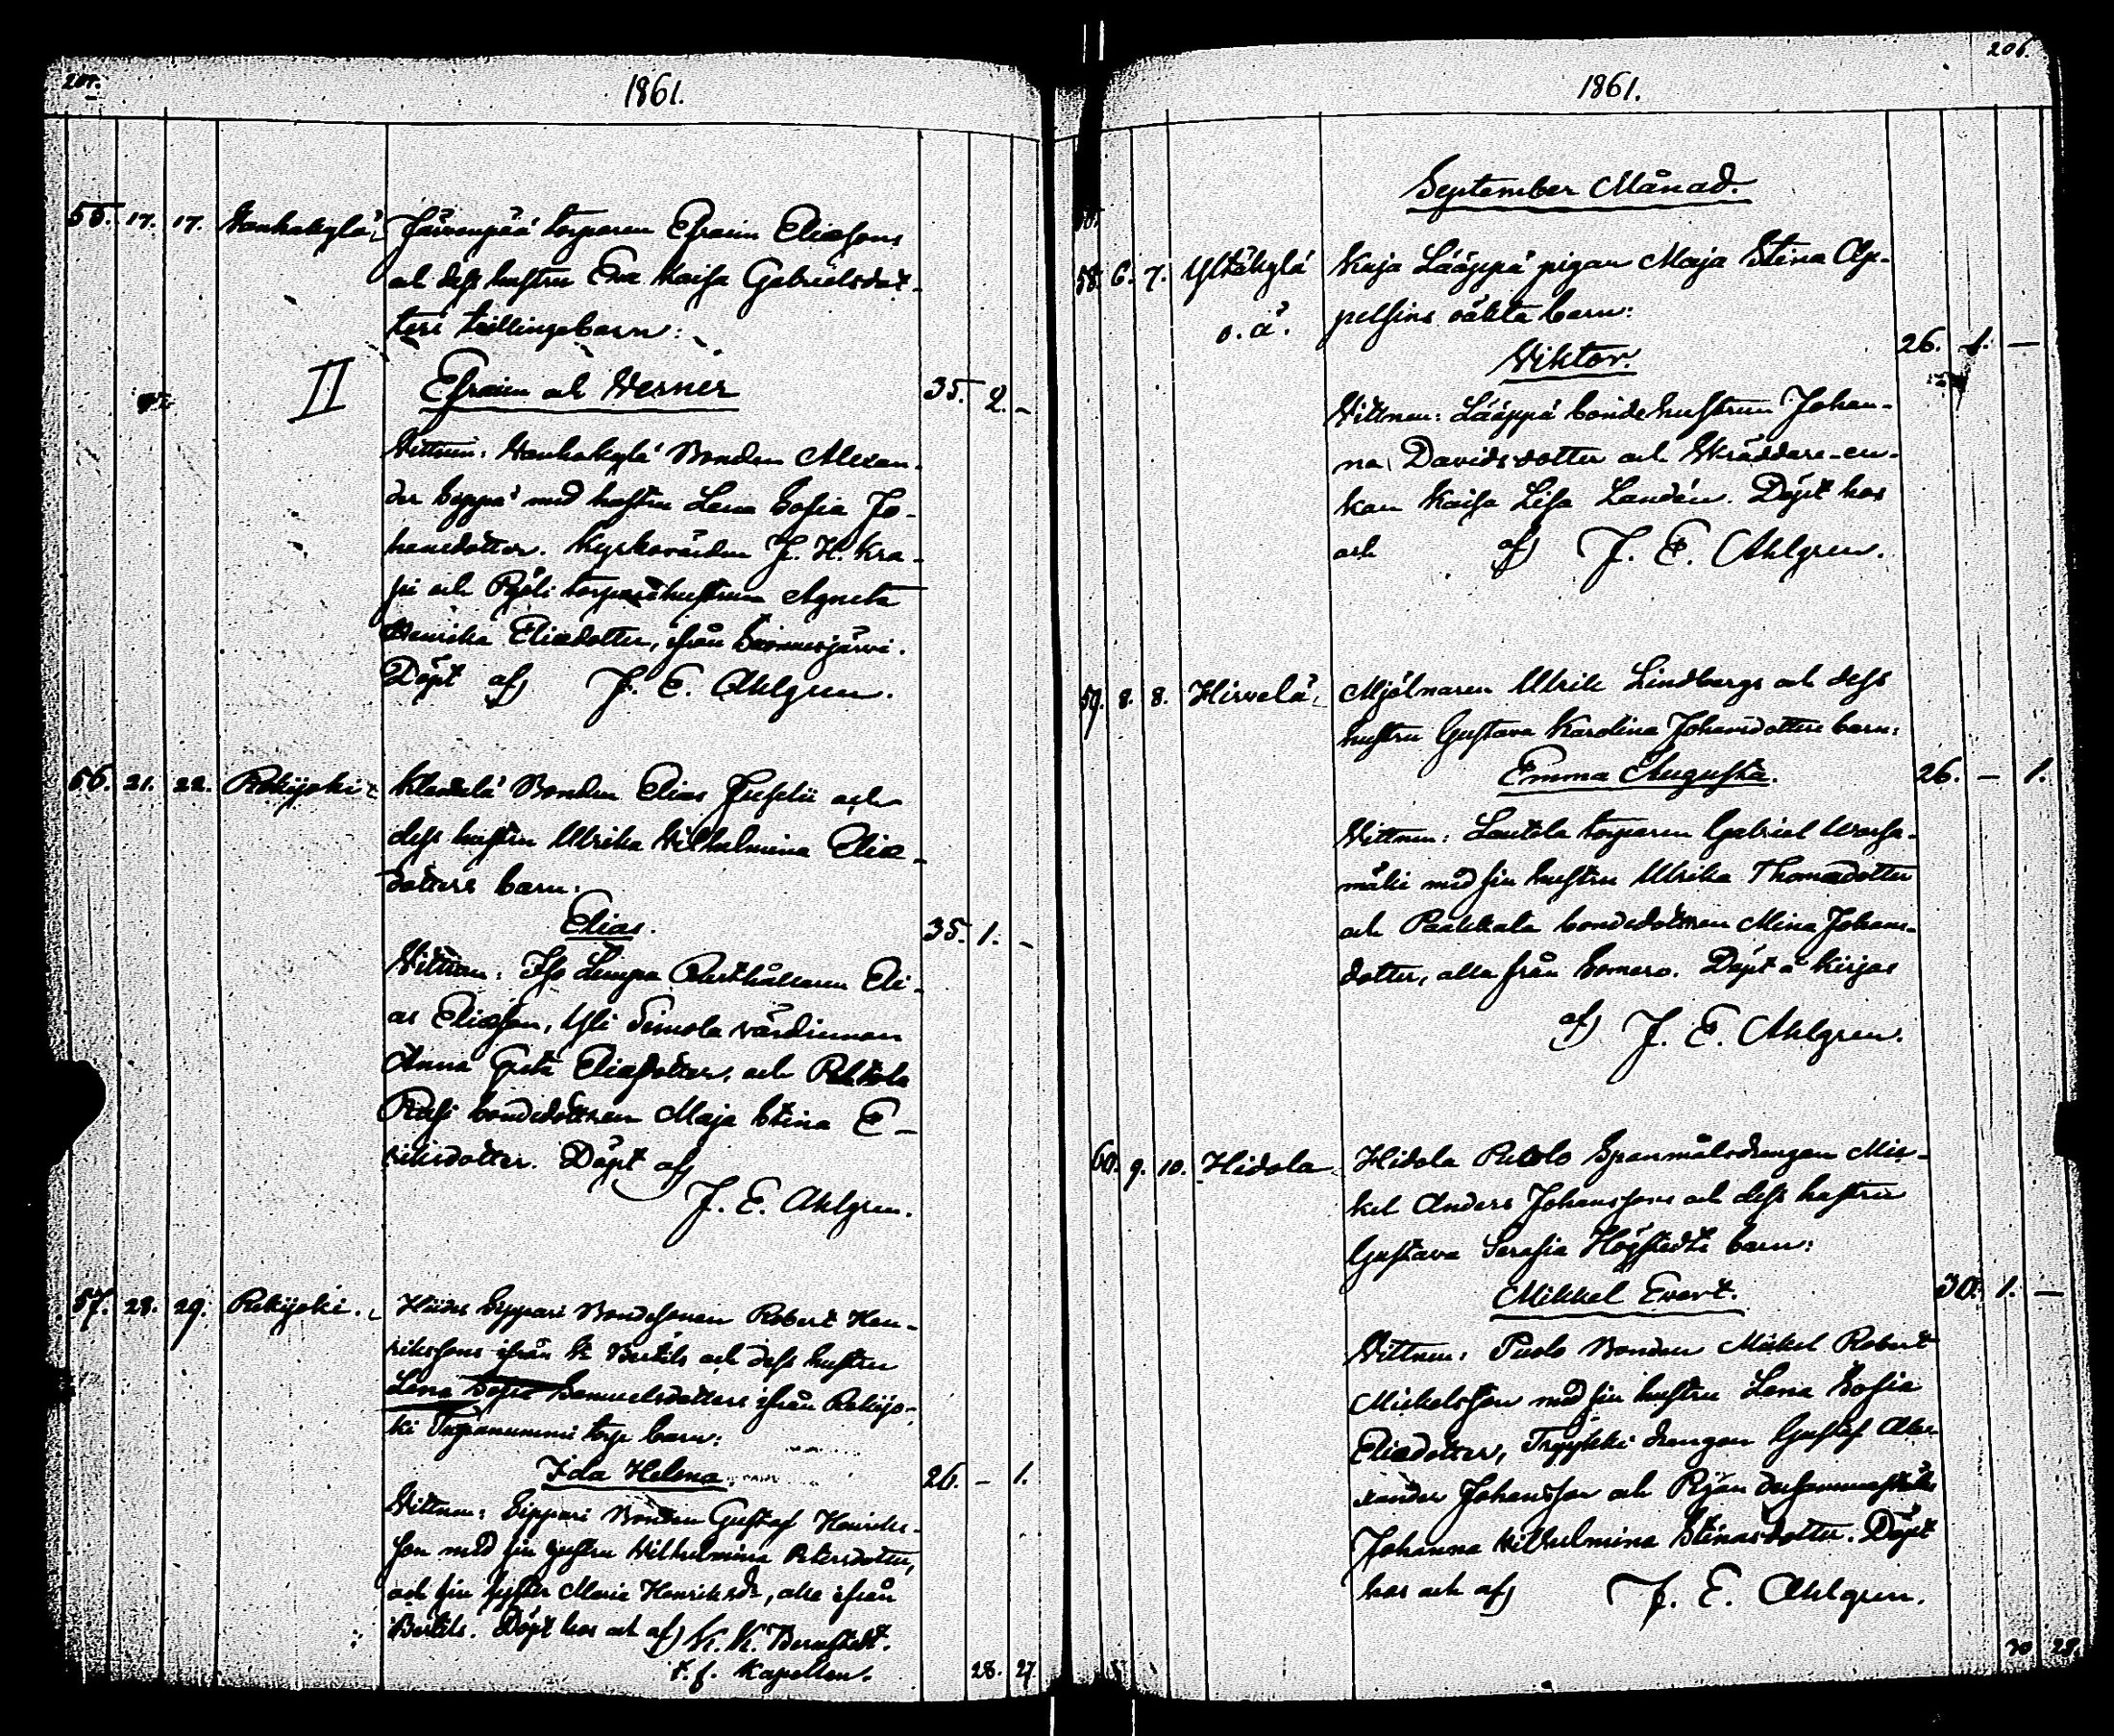 1861.
55. 17. 17. Vanhakylä Järvenpää torparen Efraim Eliæsons
och dess hustru Eva Kaisa Gabrielsdot-
ters tvillingebarn:
II Efraim och Verner 35. 2. -
Vittnen: Vanhakylä Bonden Alexan-
der Seppä med hustru Lena Sofia Jo-
hansdotter. Kyrkovärden J. H. Kra-
och torparehustrun Agneta
Henrika Eliædotter, ifrån Somerojärvi.
Döpt af J. E. Ahlgren.
56. 21. 22. Rekijoki Bonden Elias och
dess hustru Ulrika Vilhelmina Eliæ-
dotters barn:
Elias. 35. 1. -
Vittnen: Iso Lempa Rusthållaren Eli-
as Eliæson, Yli Simola värdinnan
Anna Greta Eliædotter, och
bondedottren Maja Stina E-
riksdotter. Döpt af
J. E. Ahlgren.
57. 28. 29. Rekijoki. Hiides Sippari Bondesonen Robert Hen-
rikssons ifrån St Bertils och dess hustru
Lena Sofia Samuelsdotters ifrån Rekijo-
ki torp barn:
Ida Helena 26. - 1.
Vittnen: Sippari Bonden Gustaf Henriks-
son med sin hustru Vilhelmina Petersdotter,
och sin syster Maria Henriksdr, alla ifrån
Bertils. Döpt hos och af K. K. Bernstedt.
t. f. Kapellan.
28. 27
206.
1861.
September Månad.
58. 6. 7. Yltäkylä Kuja Lääppä pigan Maja Stina Ap-
o. ä. pelsins oäkta barn:
Viktor. 26. 1. —
Vittnen: Lääppä bondehustrun Johan-
na Davidsdotter och Skräddare-en-
kan Kaisa Lisa Landén. Döpt hos
och af J. E. Ahlgren.
59. 8. 8. Hirvelä Mjölnaren Ulrik Lindbergs och dess
hustru Gustava Karolina Johansdotters barn:
Emma Augusta. 26. — 1.
Vittnen: Lautela torparen Gabriel
mäki med sin hustru Ulrika Thomædotter
och Paakkala bondedottren Mina Johans-
dotter, alla från Somero. Döpt å Kirjas
af J. E. Ahlgren.
60. 9. 10. Hidola Hidola Puolo Spanmålsdrängen Mic-
kel Anders Johanssons och dess hustru
Gustava Serafia Högstedts barn:
Mikkel Evert. 30. 1. —
Vittnen: Puolo Bonden Mickel Robert
Mickelsson med sin hustru Lena Sofia
Eliædotter, Tryykki drängen Gustaf Alex-
ander Johansson och
Johanna Vilhelmina Stinasdotter. Döpt
hos och af J. E. Ahlgren.
30 28